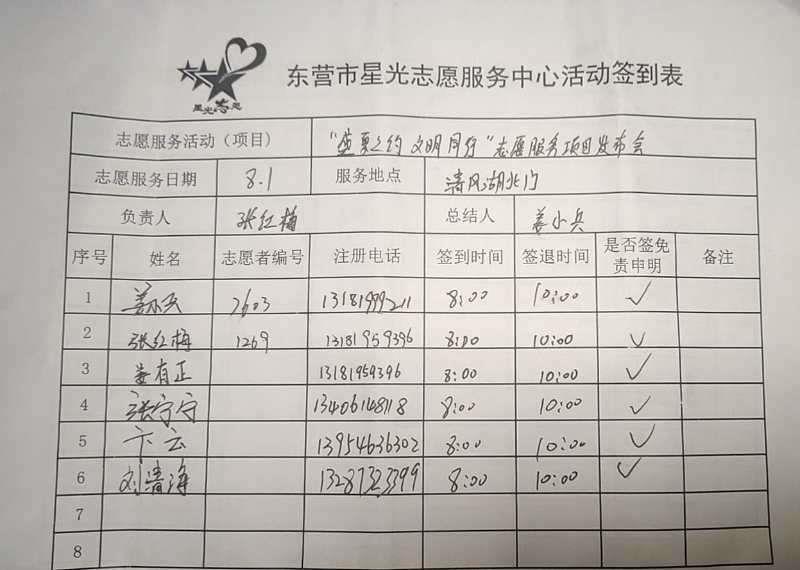 星光志愿
东营市星光志愿服务中心活动签到表
志愿服务活动（项目） “盛夏之约 文明同行”志愿服务项目发布会
志愿服务日期 8.1 服务地点 清风湖北门
负责人 张红梅 总结人 姜小兵
序号 姓名 志愿者编号 注册电话 签到时间 签退时间 是否签免责申明 备注
1 姜小兵 2603 13181999211 8:00 10:00 ✓
2 张红梅 1269 13181959396 8:00 10:00 ✓
3 姜有正 13181959396 8:00 10:00 ✓
4 张宁宁 13406148118 8:00 10:00 ✓
5 卞云 13954636302 8:00 10:00 ✓
6 刘清海 13287323399 8:00 10:00 ✓
7
8